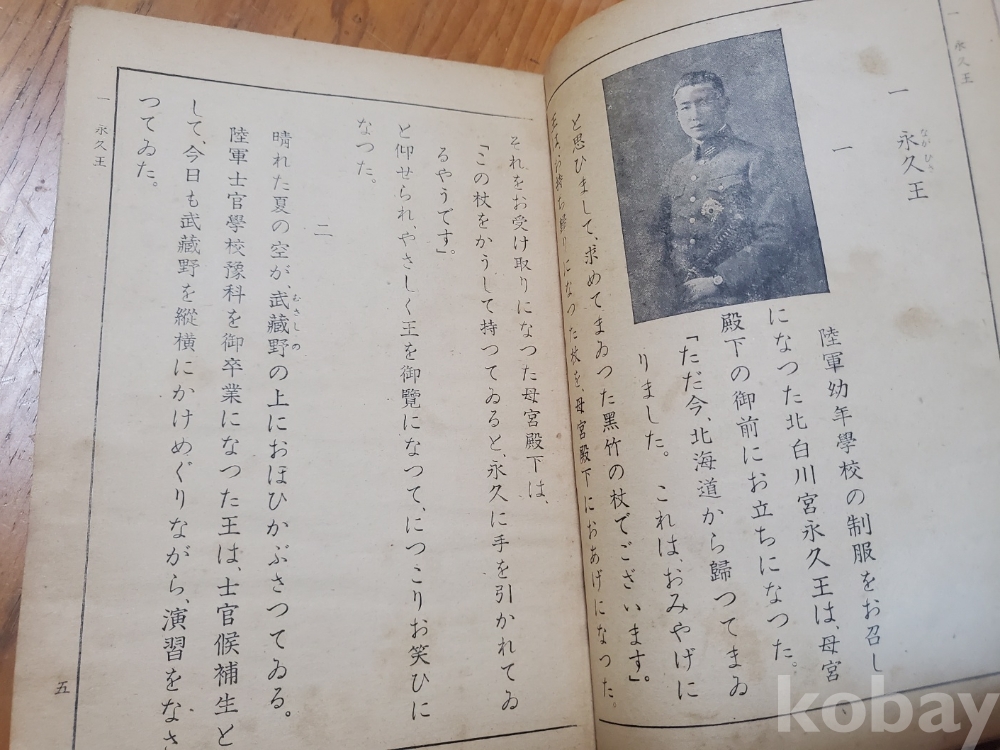 一 永久王
一 永久王
ながひさ
一
陸軍幼年學校の制服をお召し
になつた北白川宮永久王は、母宮
殿下の御前にお立ちになつた。
「ただ今、北海道から歸つてまゐ
りました。これは、おみやげに
と思ひまして、求めてまゐつた黑竹の杖でございます」。
王は、お持ち歸りになつた杖を、母宮殿下におあげになつた。
それをお受け取りになつた母宮殿下は、
「この杖をかうして持つてゐると、永久に手を引かれてゐ
るやうです」。
と仰せられ、やさしく王を御覽になつて、につこりお笑ひに
なつた。
二
晴れた夏の空が、武藏野の上におほひかぶさつてゐる。
むさしの
陸軍士官學校豫科を御卒業になつた王は、士官候補生と
して、今日も武藏野を縱橫にかけめぐりながら、演習をなさ
つてゐた。
一 永久王
五
kobay